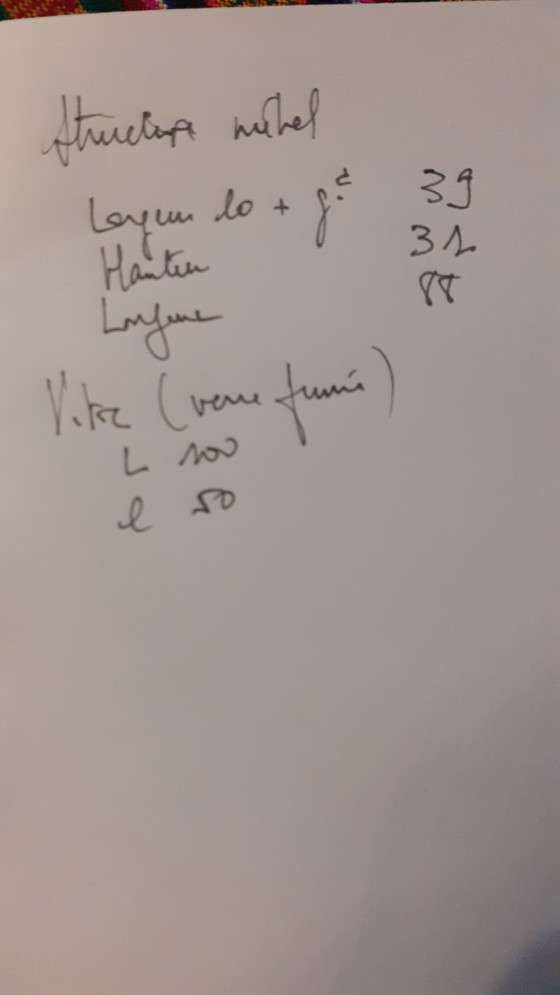 Structure métal
Largeur la + gde 39
Hauteur 31
Longueur 88
Vitre (verre fumé)
L 100
l 50